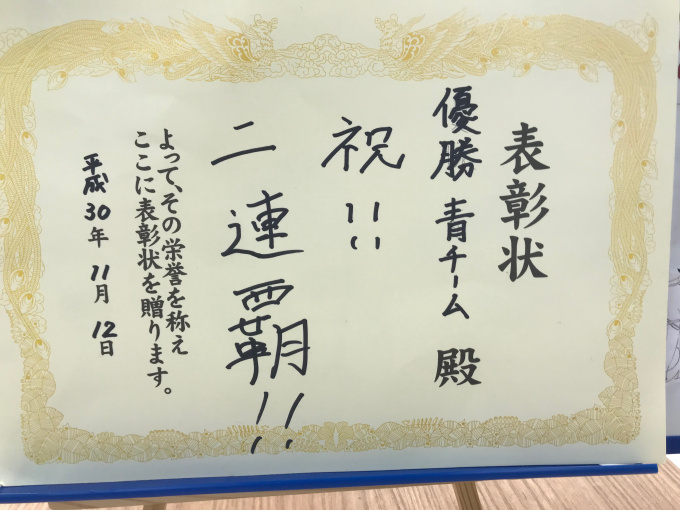 表彰状
優勝 青チーム 殿
祝!!
二連覇!!
よって、その栄誉を称え
ここに表彰状を贈ります。
平成30年11月12日